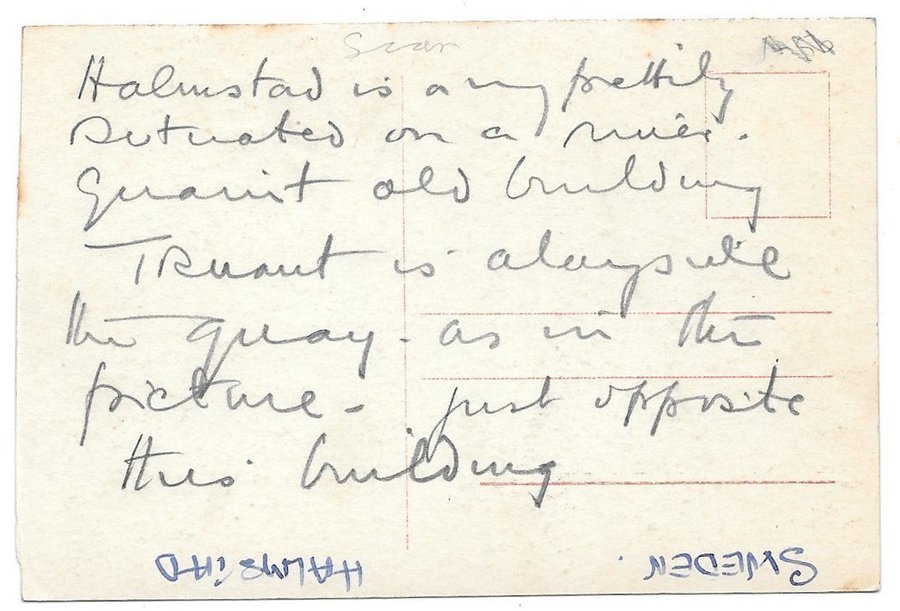 Scan
Halmstad is a very prettily
situated on a river.
Quaint old building
Truant is alongside
the quay - as in the
picture - just opposite
this building
HALMSTAD
SWEDEN.